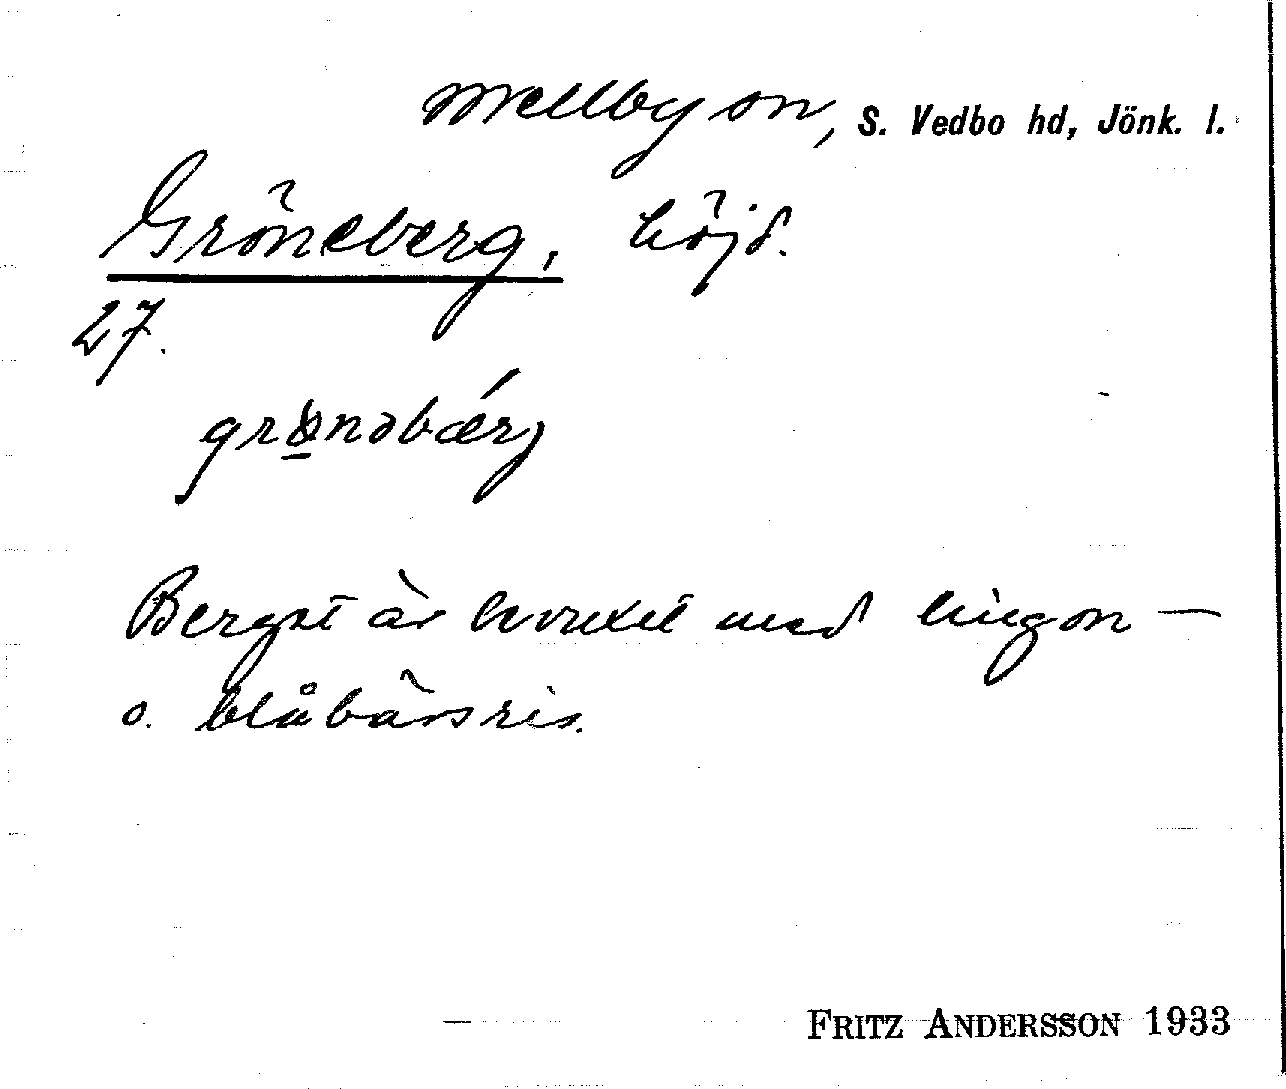 Mellby sn, S. Vedbo hd, Jönk. l.
Gröneberg, höjd.
27.
grønəbǽrj
Berget är beväxt med lingon —
o. blåbärsris.
FRITZ ANDERSSON 1933